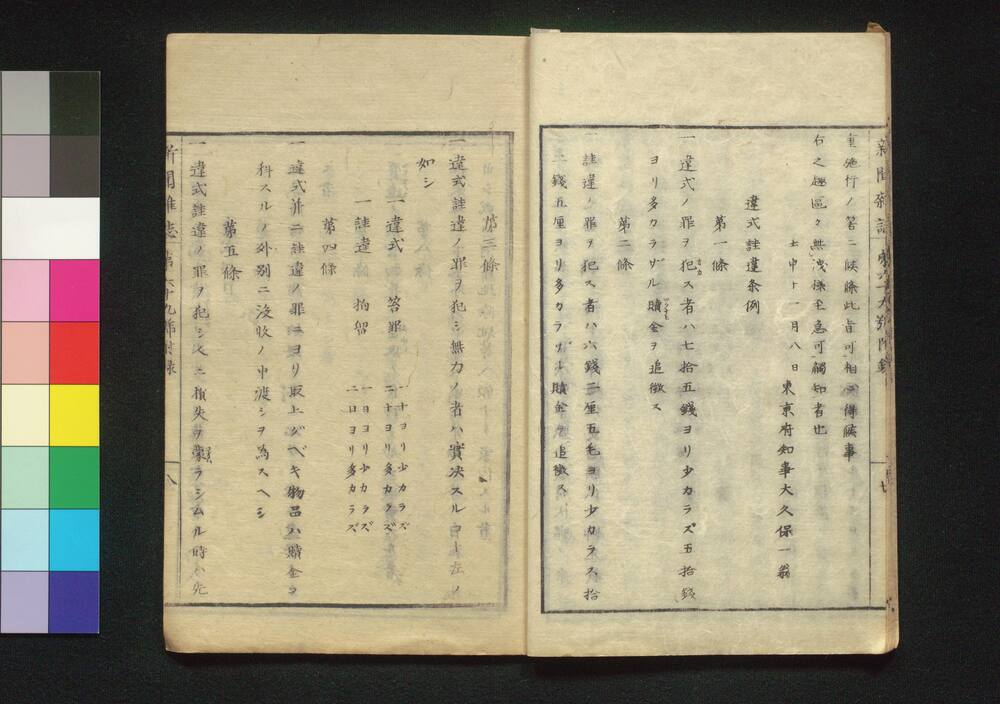 新聞雑誌
実施行ノ筈ニ候條此旨可相心得候事
右之趣區々無洩様至急可觸知者也
壬申十一月八日東京府知事大久保一翁
違式註違条例
第一條
一違式ノ罪ヲ犯ス者ハ七拾五錢ヨリ少カラズ五拾錢
ヨリ多カラザル贖金ヲ追徴ス
第二條
一註違ノ罪ヲ犯ス者ハ六錢二厘五毛ヨリ少カラス拾
二錢五厘ヨリ多カラザル贖金ヲ追徴ス
第三條
一違式註違ノ罪ヲ犯シ無力ノ者ハ實决スルヿ左ノ
如シ
一違式 笞罪 一十ヨリ少カラズ
二十ヨリ多カラズ
一註違 拘留 一日ヨリ少カラズ
二日ヨリ多カラズ
第四條
一違式并ニ註違ノ罪ニヨリ取上グベキ物品ハ贖金ヲ
科スルノ外別ニ沒收ノ申渡シヲ為スヘシ
第五條
一違式註違ノ罪ヲ犯シ人ニ損失ヲ蒙ラシムル時ハ先
新聞雑誌 第六十九號附録 八